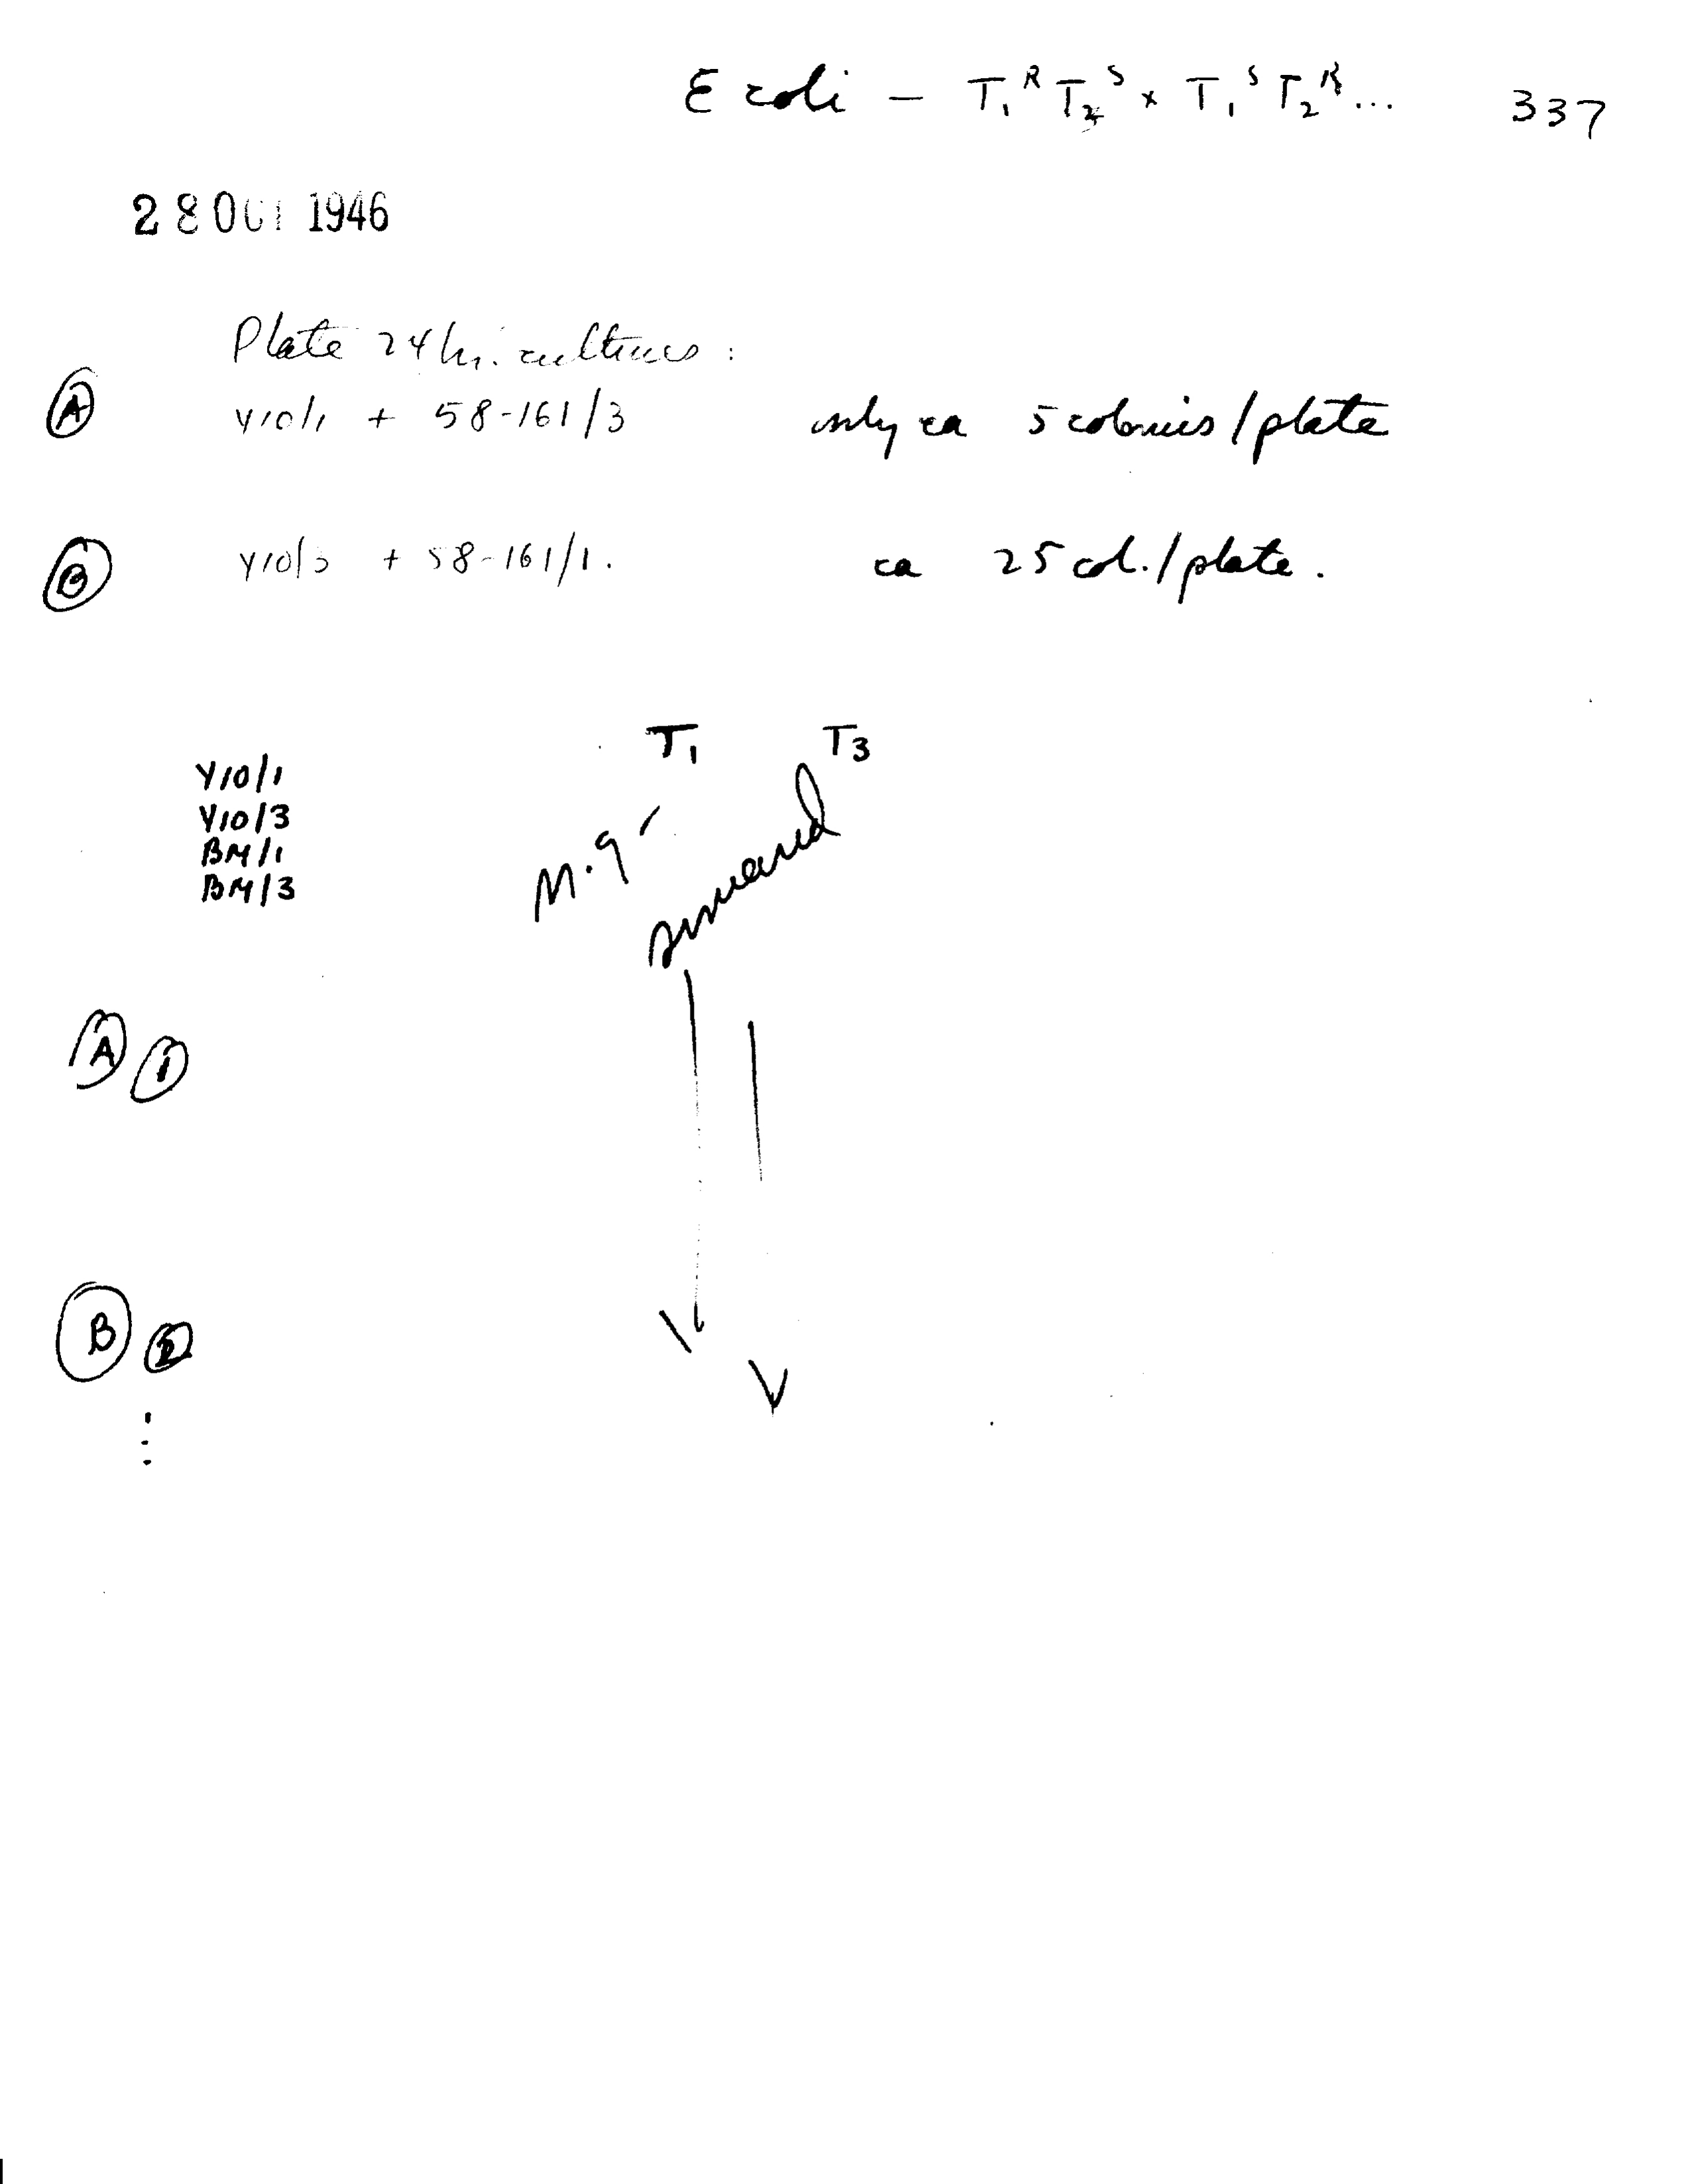 E coli – T₁ᴿ T₂ˢ × T₁ˢ T₂ᴿ... 337
28 OCT 1946
Plate 24 hr. cultures :
(A) Y10/1 + 58-161/3 only ca 5 colonies / plate
(B) Y10/3 + 58-161/1. ca 25 col. / plate.
T₁ T₃
Y10/1
Y10/3
BM/1
BM/3
smeared
(A) (1)
(B)
⋮